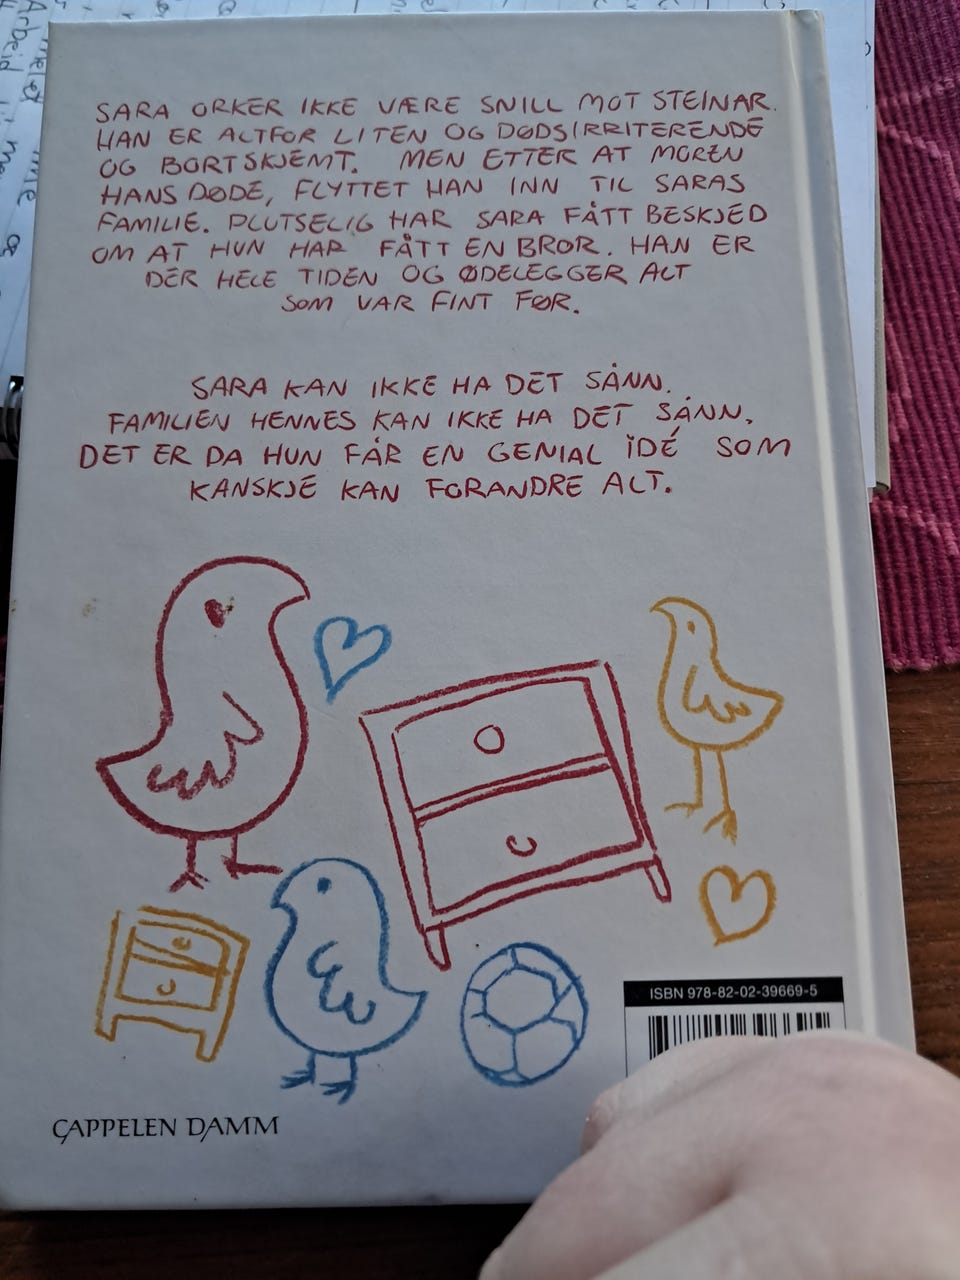 SARA ORKER IKKE VÆRE SNILL MOT STEINAR.
HAN ER ALTFOR LITEN OG DØDSIRRITERENDE
OG BORTSKJEMT. MEN ETTER AT MOREN
HANS DØDE, FLYTTET HAN INN TIL SARAS
FAMILIE. PLUTSELIG HAR SARA FÅTT BESKJED
OM AT HUN HAR FÅTT EN BROR. HAN ER
DER HELE TIDEN OG ØDELEGGER ALT
SOM VAR FINT FØR.
SARA KAN IKKE HA DET SÅNN.
FAMILIEN HENNES KAN IKKE HA DET SÅNN.
DET ER DA HUN FÅR EN GENIAL IDÉ SOM
KANSKJE KAN FORANDRE ALT.
ISBN 978-82-02-39669-5
CAPPELEN DAMM
Arbeid